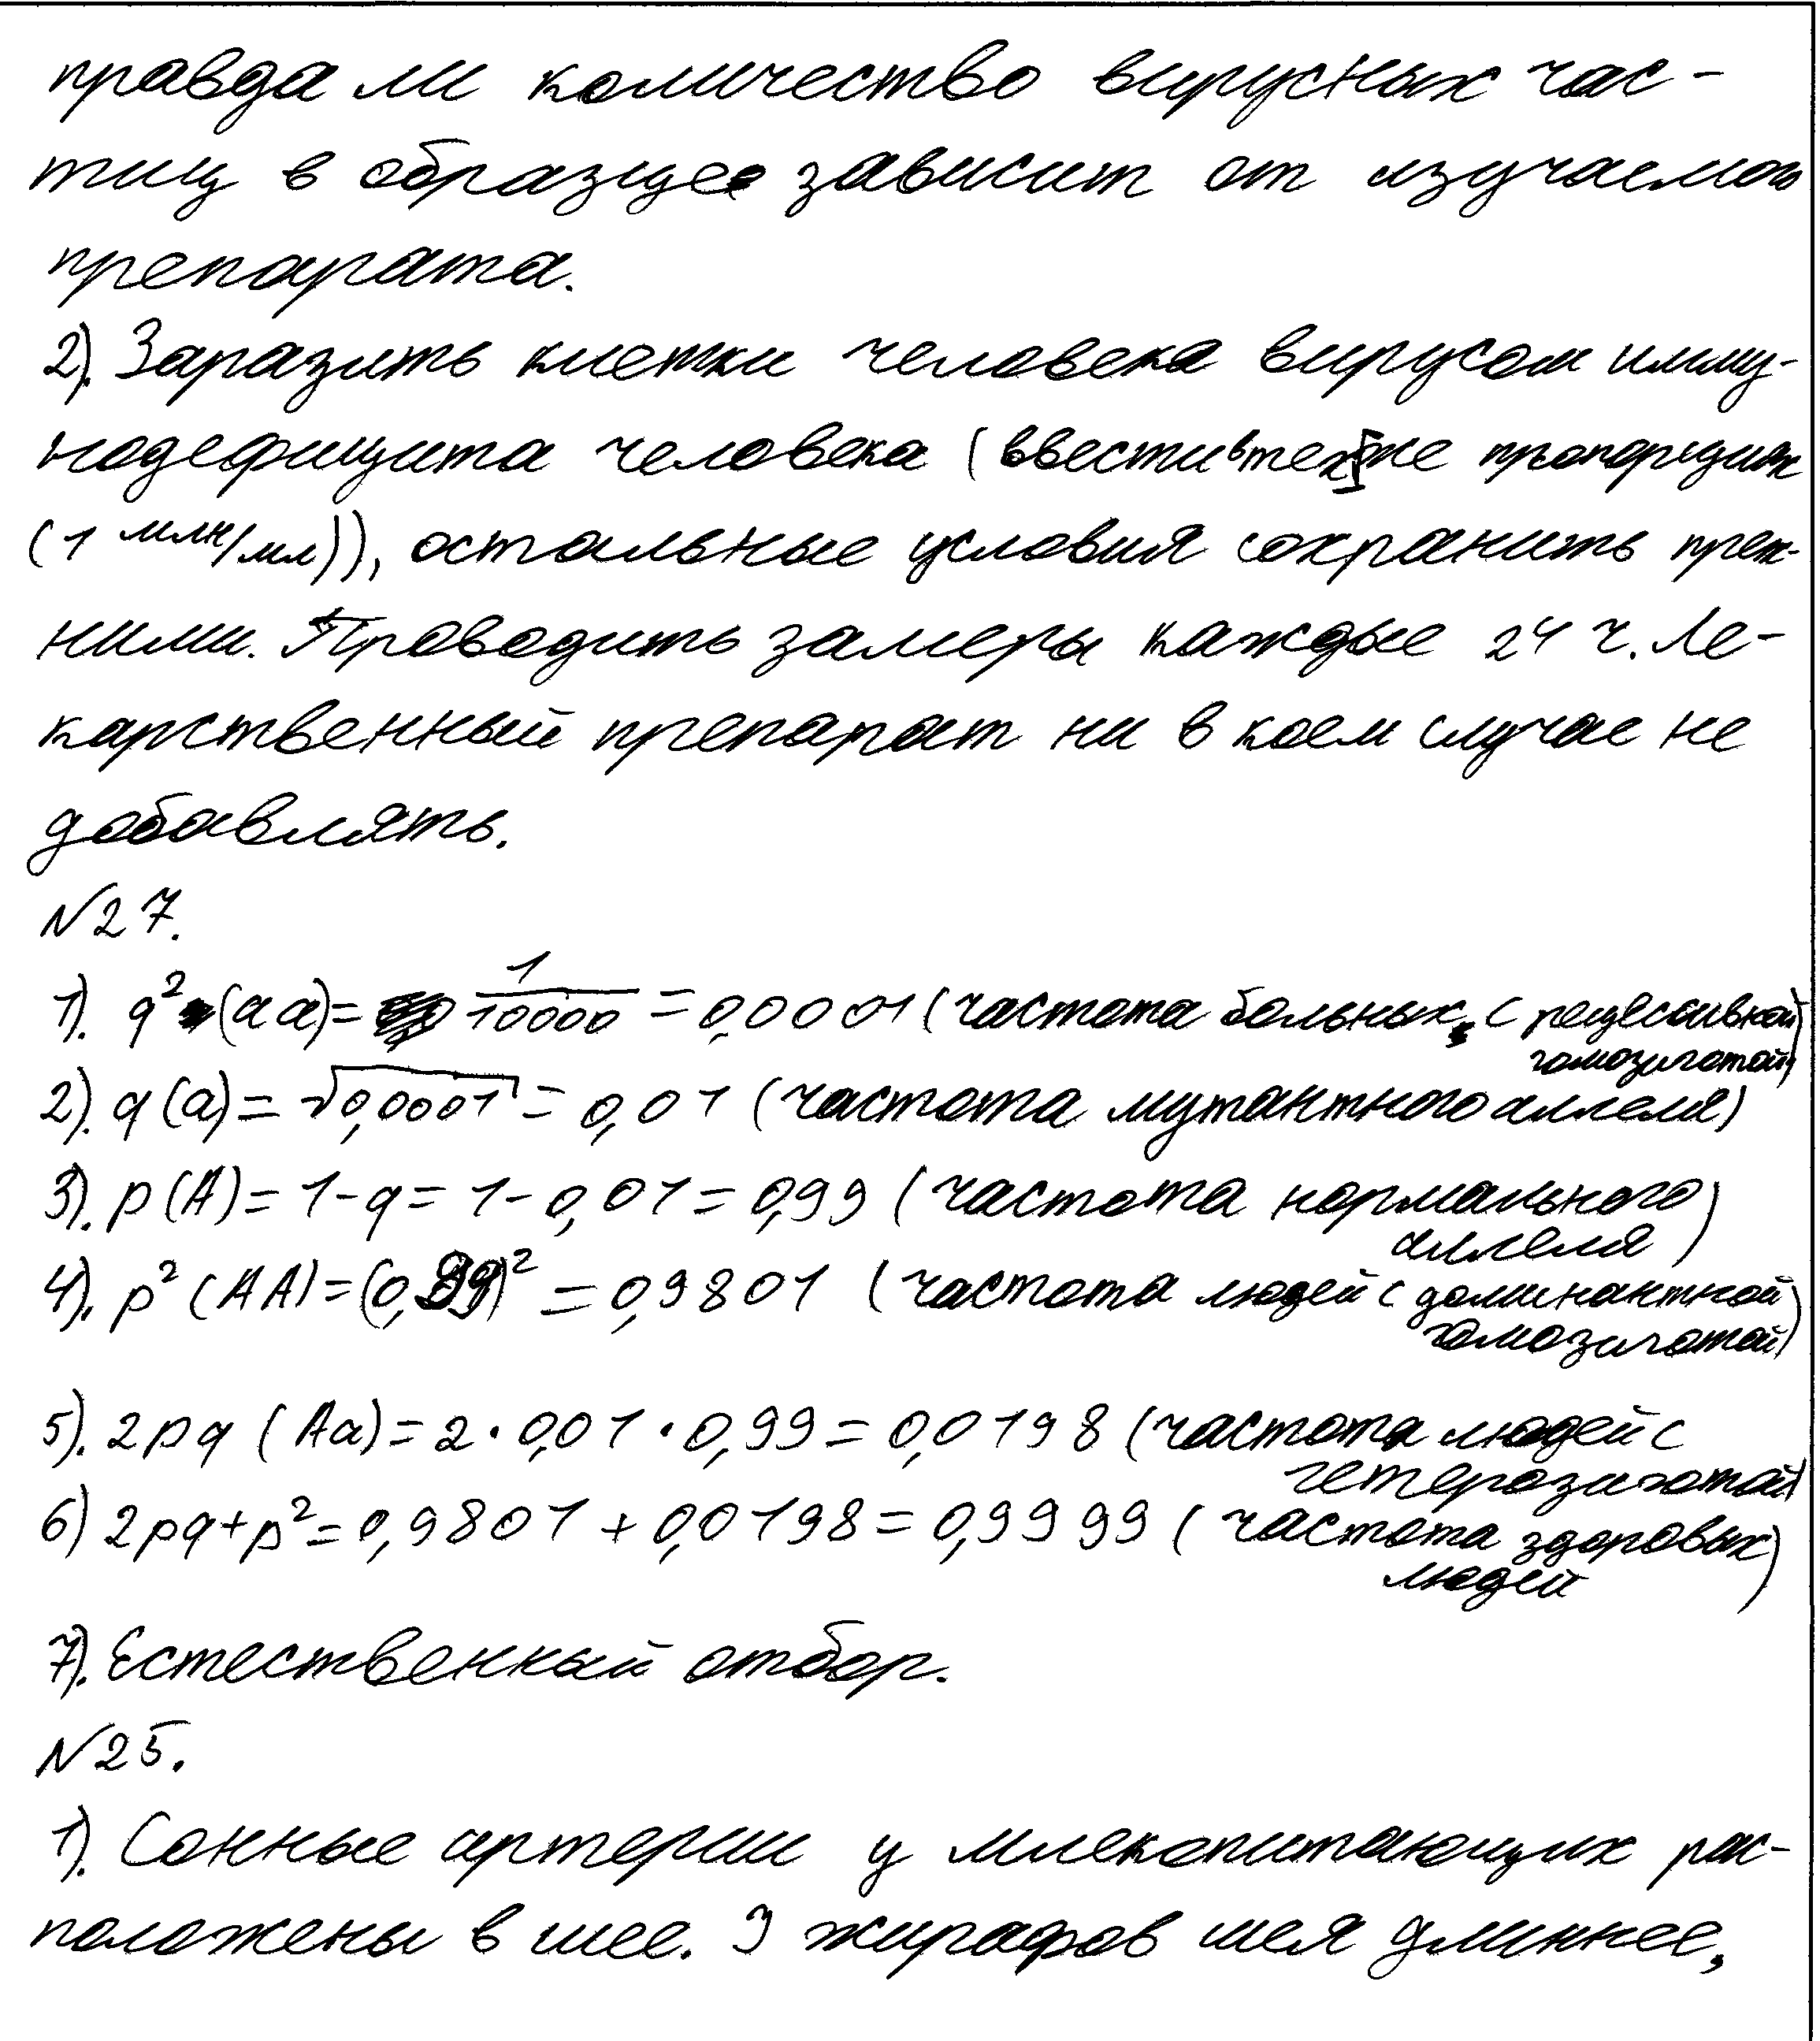 правда ли количество вирусных час-
тиц в образце зависит от изучаемого
препарата.
2). Заразить клетки человека вирусом имму-
нодефицита человека (ввести в тех же пропорциях
(1 млн/мл)), остальные условия сохранить преж-
ними. Проводить замеры каждые 24 ч. Ле-
карственный препарат ни в коем случае не
добавлять.
№27.
1). q² (aa) = 1/10000 = 0,0001 (частота больных с рецессивной
гомозиготой)
2). q (a) = √0,0001 = 0,01 (частота мутантного аллеля)
3). p (A) = 1 - q = 1 - 0,01 = 0,99 (частота нормального
аллеля)
4). p² (AA) = (0,99)² = 0,9801 (частота людей с доминантной
гомозиготой)
5). 2pq (Aa) = 2 · 0,01 · 0,99 = 0,0198 (частота людей с
гетерозиготой)
6) 2pq + p² = 0,9801 + 0,0198 = 0,9999 (частота здоровых
людей)
7). Естественный отбор.
№25.
1). Сонные артерии у млекопитающих рас-
положены в шее. У жирафов шея длиннее,